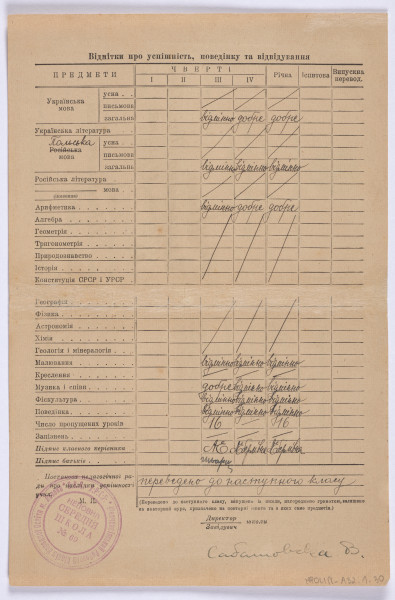 Відмітки про успішність, поведінку та відвідування
ПРЕДМЕТИ ЧВЕРТІ Річна Іспитова Випускна перевод.
I II III IV
Українська мова
усна
письмова
загальна відмінно добре добре
Українська література
Польська
Російська мова
усна
письмова
загальна відмінно відмінно відмінно
Російська література
мова
Арифметика відмінно добре добре
Алгебра
Геометрія
Тригонометрія
Природознавство
Історія
Конституція СРСР і УРСР
Географія
Фізика
Астрономія
Хімія
Геологія і мінералогія
Малювання відмінно відмінно відмінно
Креслення
Музика і співи добре відмінно відмінно
Фізкультура відмінно відмінно відмінно
Поведінка відмінно відмінно відмінно
Число пропущених уроків 16 — 16
Запізнень
Підпис класного керівника
Підпис батьків
Постанова педагогічної ради про наслідки успішності учня: переведено до наступного класу
М. П.
Директор школи
Завідувач
СЕРЕДНЯ
ШКОЛА
№